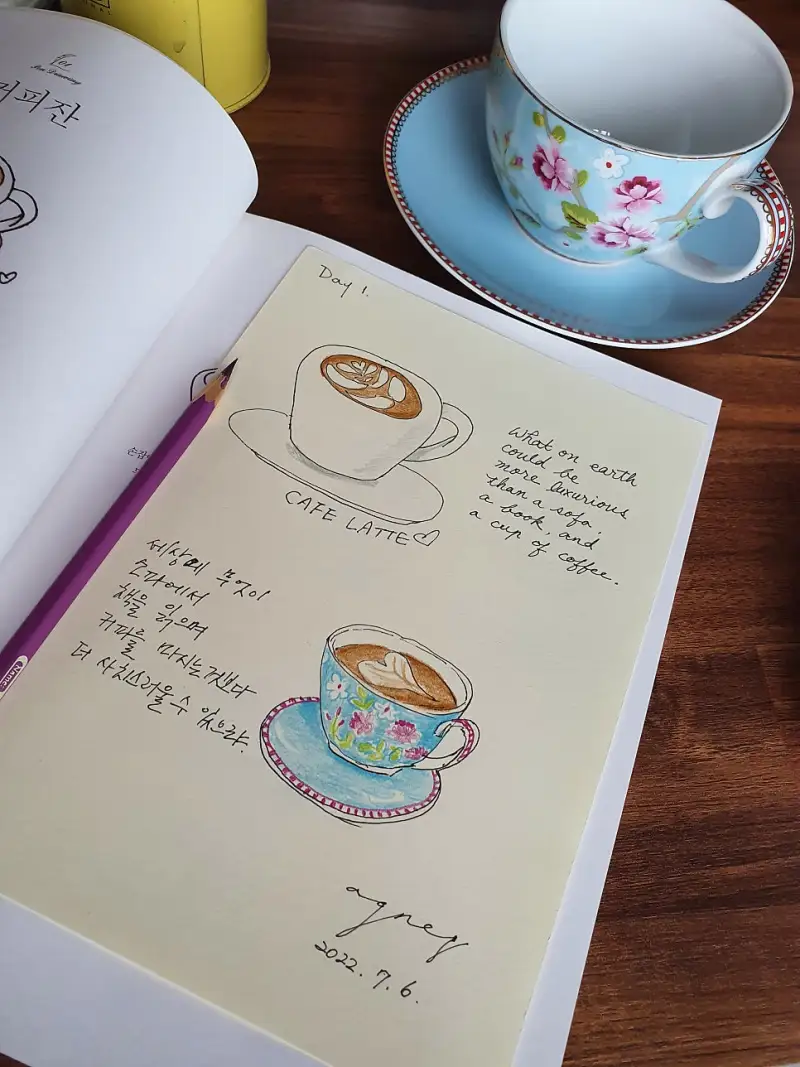 커피잔
Day 1.
What on earth
could be
more luxurious
than a sofa,
a book, and
a cup of coffee.
CAFE LATTE
세상에 무엇이
소파에서
책을 읽으며
커피를 마시는것보다
더 사치스러울 수 있으랴.
agnes
2022. 7. 6.
NAME